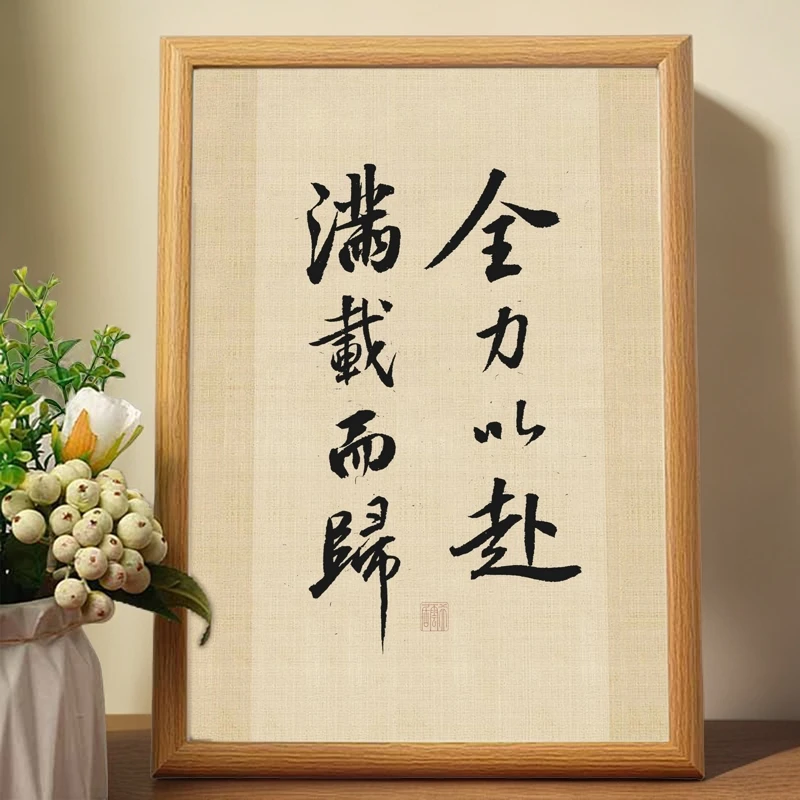 全力以赴
滿載而歸